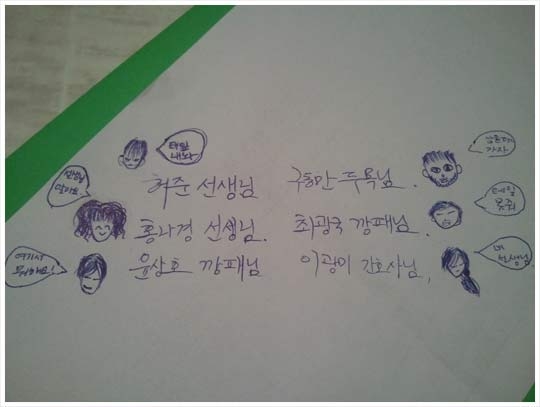 테잎
내놔
허준 선생님
선생님
홍나경 선생님.
여기서
뭐하냐!
윤상호 깡패님
가자.
구동만 두목님.
테잎
못줘
최광국 깡패님.
네
선생님
이광미 간호사님,